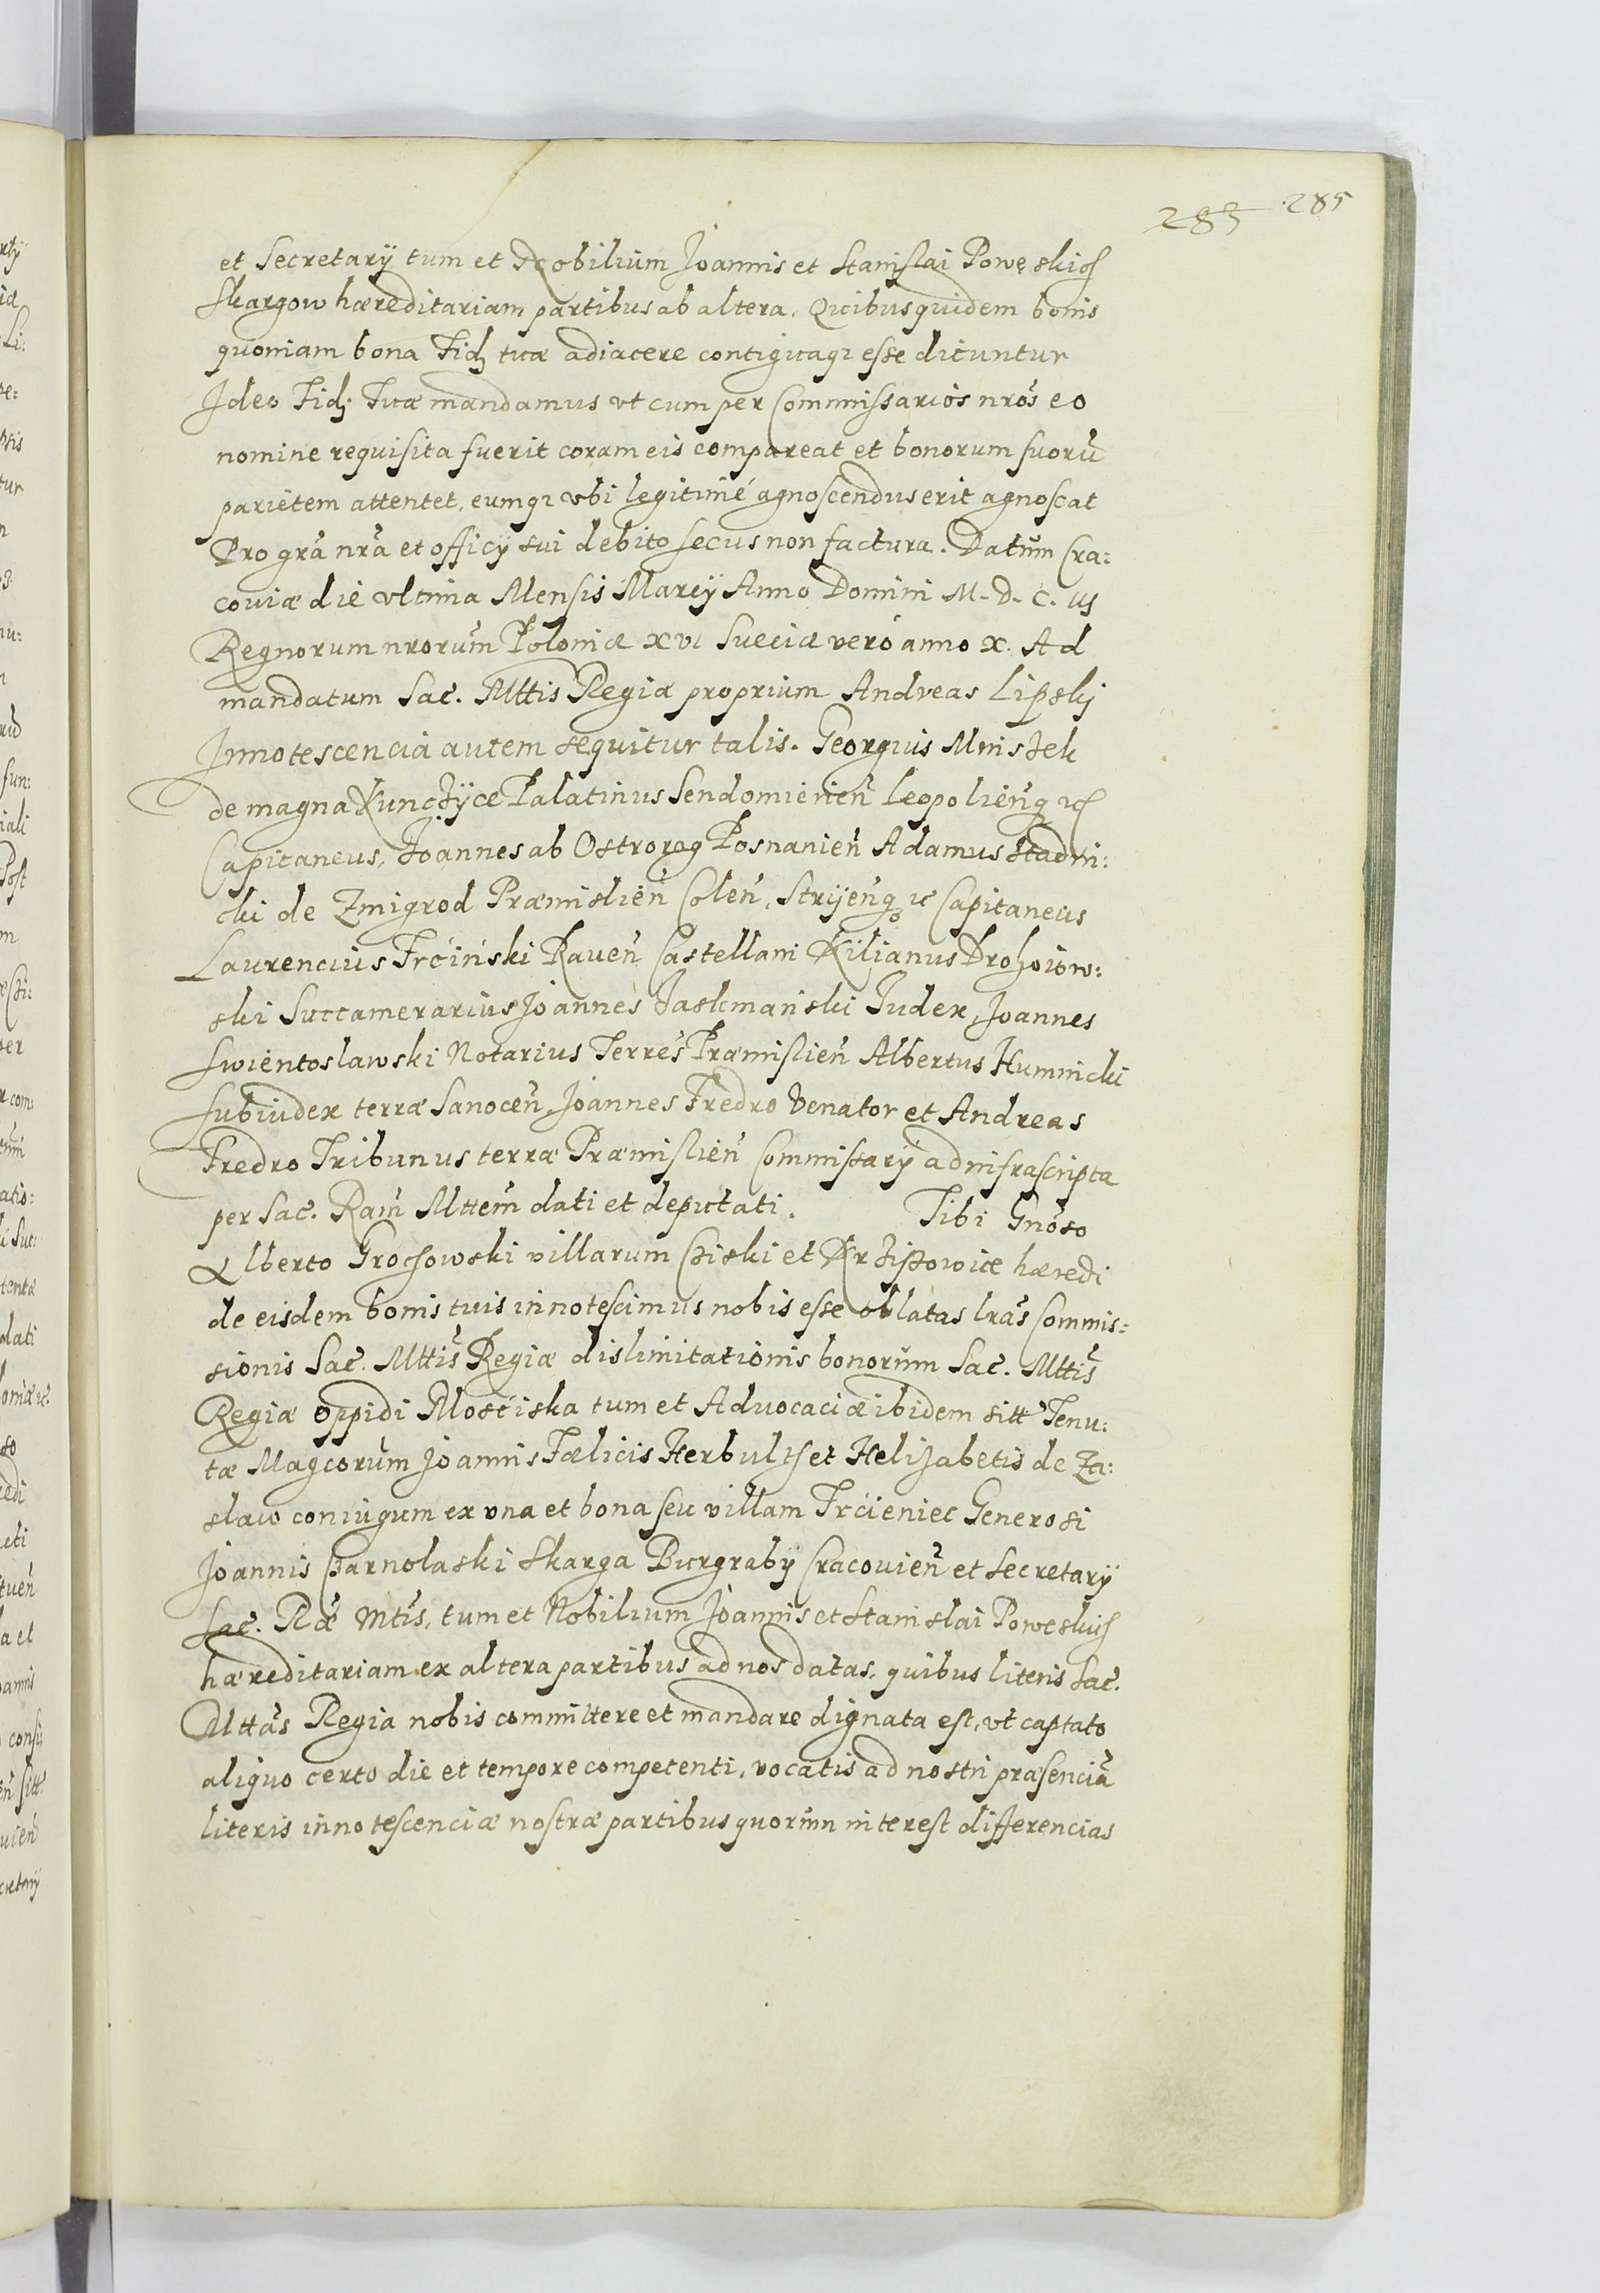 283 285
et Secretarÿ tum et Nobilium Joannis et Stanislai Powęskich
Skargow hæreditariam partibus ab altera. Quibus quidem bonis
quoniam bona Fidej tuæ adiacere contiguaqɜ esse dicuntur
Ideo Fidej Tuæ mandamus vt cum per Commissarios nr̃os eo
nomine requisita fuerit coram eis compareat et bonorum suorũ
parietem attentet, eumqɜ vbi legitimé agnoscendus erit agnoscat
Pro gr̃a nr̃a et officÿ sui debito secus non factura. Datum Cra:
couiæ die vltima Mensis Marcÿ Anno Domini M. D. C. iij
Regnorum nrorum Poloniæ xvi Sueciæ veró anno x. Ad
mandatum Sac. Mttis Regiæ proprium Andreas Lipskj
Innotescencia autem sequitur talis. Georgius Mnisɜek
de magna Kuncɜÿce Palatinus Sendomirien̄ Leopolien̄qɜ etc
Capitaneus, Joannes ab Ostrorog Posnanien̄ Adamus Stadni:
cki de Zmigrod Præmislien̄ Colen̄, Strÿen̄qɜ etc Capitaneus
Laurencius Trcinski Raven̄ Castellani Kilianus Drohoiow:
ski Succamerarius Joannes Jaskmanski Judex, Joannes
Swientoslawski Notarius Terres Præmislien̄ Albertus Humnicki
Subiudex terræ Sanocen̄, Joannes Fredro Venator et Andreas
Fredro Tribunus terræ Præmislien̄ Commissarÿ ad infrascripta
per Sac. Ram̃ Mttem̃ dati et deputati. Tibi Gnoso
Alberto Grochowski villarum Cɜiski et Krɜisɜowice hæredi
de eisdem bonis tuis innotescimus nobis esse oblatas lr̃as Commis:
sionis Sac. Mttis Regiæ dislimitationis bonorum Sac. Mttis
Regiæ oppidi Mosciska tum et Aduocaciæ ibidem sitt Tenu:
tæ Magcorum Joannis Fælicis Herbulth et Helizabetis de Za:
slaw coniugum ex vna et bona seu villam Trcieniec Generosi
Joannis Cɜarnolaski Skarga Burgrabÿ Cracouien̄ et Secretarÿ
Sac. Ræ Mtis, tum et Nobilium Joannis et Stanislai Poweskich
hæreditariam ex altera partibus ad nos datas, quibus literis Sac.
Mttas Regia nobis committere et mandare dignata est, vt captato
aliquo certo die et tempore competenti, vocatis ad nostri præsenciã
literis innotescenciæ nostræ partibus quorum interest differencias